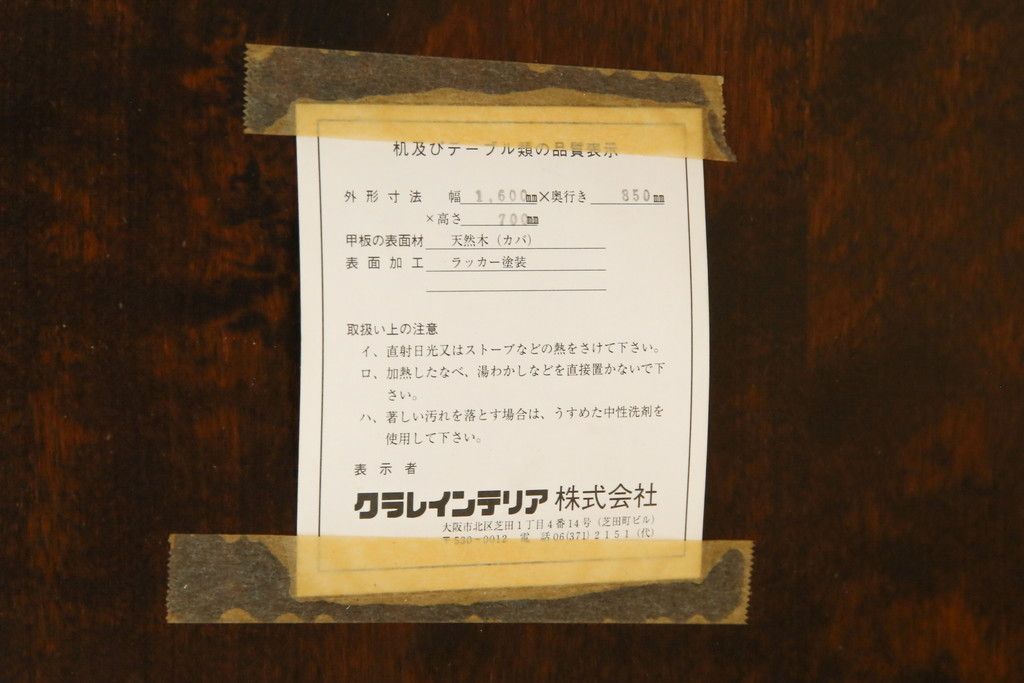 机及びテーブル類の品質表示
外形寸法 幅 1,600㎜×奥行き 850㎜
×高さ 700㎜
甲板の表面材 天然木（カバ）
表面加工 ラッカー塗装
取扱い上の注意
イ、直射日光又はストーブなどの熱をさけて下さい。
ロ、加熱したなべ、湯わかしなどを直接置かないで下
さい。
ハ、著しい汚れを落とす場合は、うすめた中性洗剤を
使用して下さい。
表示者
クラレインテリア株式会社
大阪市北区芝田1丁目4番14号（芝田町ビル）
〒530-0012 電話06(371)2151（代）